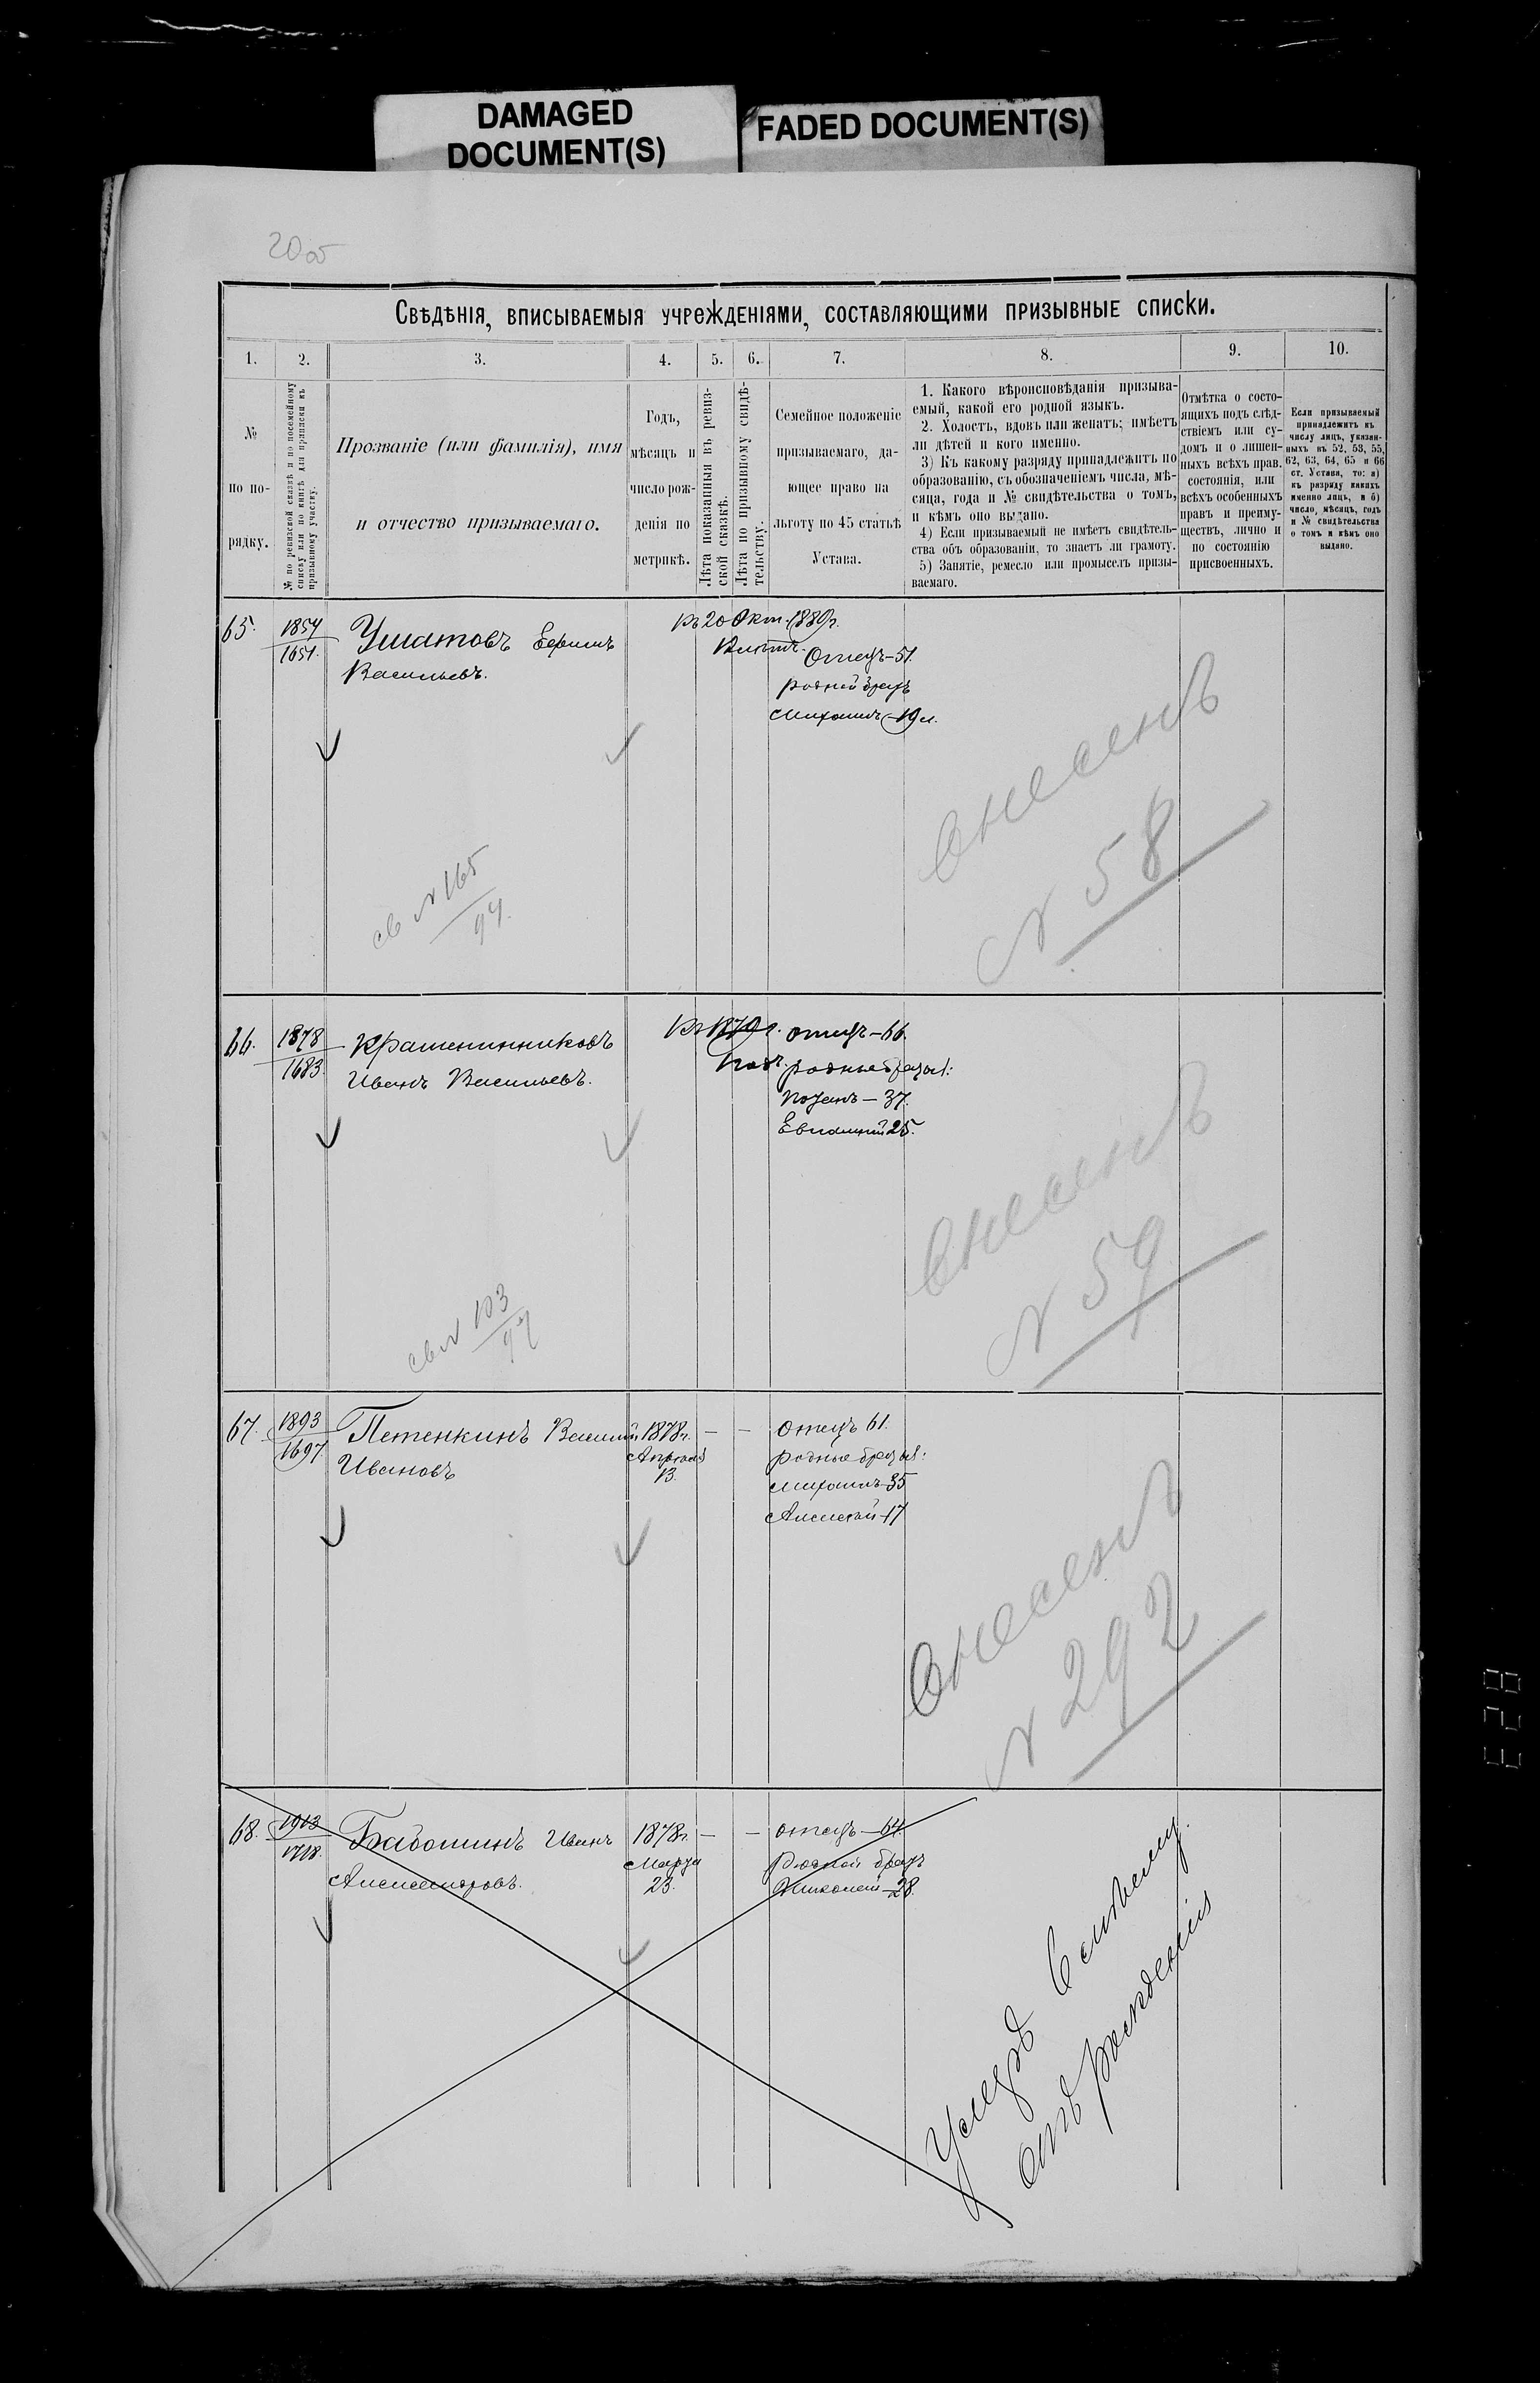 DAMAGED
DOCUMENT(S)
FADED DOCUMENT(S)
20 об
Свѣдѣнія, вписываемыя учрежденіями, составляющими призывные списки.
1. 2. 3. 4. 5. 6. 7. 8. 9. 10.
№
по по-
рядку.
№ по ревизской сказкѣ и по посемейному
списку или по книгѣ для приписки къ
призывному участку.
Прозваніе (или фамилія), имя
и отчество призываемаго.
Годъ,
мѣсяцъ и
число рож-
денія по
метрикѣ.
Лѣта показанныя въ ревиз-
ской сказкѣ.
Лѣта по призывному свидѣ-
тельству.
Семейное положеніе
призываемаго, да-
ющее право на
льготу по 45 статьѣ
Устава.
1. Какого вѣроисповѣданія призыва-
емый, какой его родной языкъ.
2. Холостъ, вдовъ или женатъ; имѣетъ
ли дѣтей и кого именно.
3) Къ какому разряду принадлежитъ по
образованію, съ обозначеніемъ числа, мѣ-
сяца, года и № свидѣтельства о томъ,
и кѣмъ оно выдано.
4) Если призываемый не имѣетъ свидѣтель-
ства объ образованіи, то знаетъ ли грамоту.
5) Занятіе, ремесло или промыселъ призы-
ваемаго.
Отмѣтка о состо-
ящихъ подъ слѣд-
ствіемъ или су-
домъ и о лишен-
ныхъ всѣхъ прав.
состоянія, или
всѣхъ особенныхъ
правъ и преиму-
ществъ, лично и
по состоянію
присвоенныхъ.
Если призываемый
принадлежитъ къ
числу лицъ, указан-
ныхъ въ 52, 53, 55,
62, 63, 64, 65 и 66
ст. Устава, то: а)
къ разряду какихъ
именно лицъ, и б)
число, мѣсяцъ, годъ
и № свидѣтельства
о томъ и кѣмъ оно
выдано.
65. 1854
1651.
Ушатовъ Ефимъ
Васильевъ.
Къ 20 Окт. 1880г.
Отецъ-51.
родной братъ
Михаилъ-19 л.
внесенъ
№ 58
св №165
94.
66. 1878
1683.
Крашенинниковъ
Иванъ Васильевъ.
отецъ-66.
родные братья:
- 37.
25.
внесенъ
№ 59
св № 103
94
67. 1893
1697
Петенкинъ Василій
Ивановъ
1878г.
Апрѣля
13.
— —
отецъ 61.
родные братья:
Михаилъ-35
Алексѣй-17
внесенъ
№ 292
68. 1913
1718.
Иванъ
Александровъ.
1878г.
Марта
23.
— —
отецъ-64.
Родной братъ
Николай-28.
Умеръ
отъ рожденія
E28